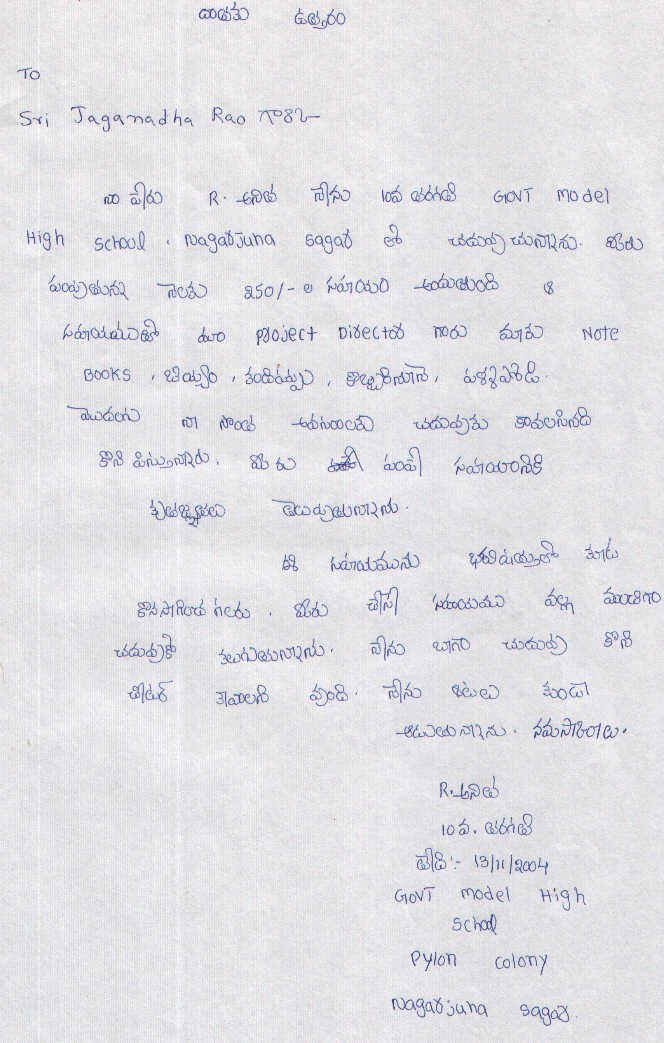 దాతకు ఉత్తరం
TO
Sri Jaganadha Rao గారికి
నా పేరు R. అనిత నేను 10వ తరగతి GOVT Model
High School. Nagarjuna Sagar లో చదువుచున్నాను. మీరు
పంపుతున్న నెలకు 250/- ల సహాయం అందుతుంది ఆ
సహాయముతో మా Project Director గారు మాకు Note
BOOKS, బియ్యం, కందిపప్పు, కొబ్బరినూనె, పళ్ళపొడి.
మొదలగు నా సొంత అవసరాలకు చదువుకు కావలసినది
కొని పిస్తున్నారు. మీరు పంపే సహాయానికి
కృతజ్ఞతలు తెలుపుతున్నాను.
ఈ సహాయమును భవిష్యత్తులో కూడ
కొనసాగించ గలరు. మీరు చేసే సహాయము వల్ల మంచిగా
చదువుకో కలుగుతున్నాను. నేను బాగా చదువు కొని
టీచర్ కావాలని వుంది. నేను ఆటలు కూడా
ఆడుతున్నాను. నమస్కారాలు.
R. అనిత
10 వ. తరగతి
తేది:- 13/11/2004
GOVT Model High
School
Pylon colony
Nagarjuna Sagar.